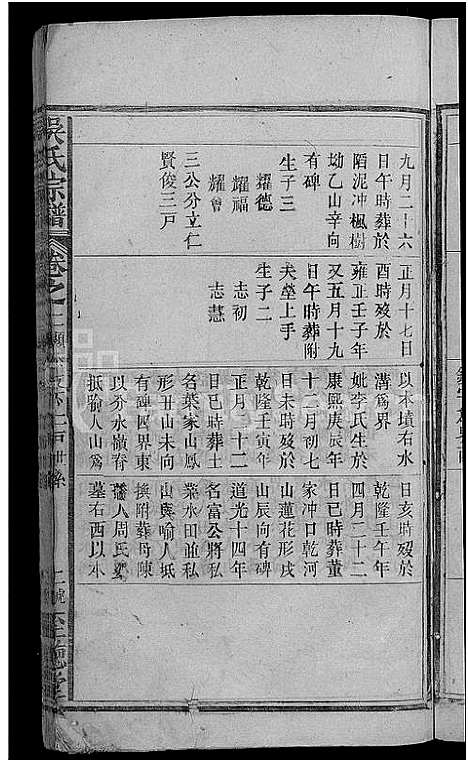 九月二十六
日午時葬於
陌泥冲楓樹
坳乙山辛向
有碑
生子三
耀德
耀福
耀會
三公分立仁
賢俊三戶
正月十七日
酉時歿於
雍正壬子年
又五月十九
日午時葬附
夫塋上手
生子二
志初
志慧
以本墳右水
溝為界
姚李氏生於
康熙庚辰年
十二月初七
日未時歿於
乾隆壬寅年
正月二十二
日巳時葬土
名葉家山鳳
形丑山未向
有碑四界東
以分水嶺脊
抵喻人山為
日亥時歿於
乾隆壬午年
四月二十二
日巳時葬董
家冲口乾河
山蓮花形戌
山辰向有碑
道光十四年
名富公將私
業水田並私
山與喻人坻
換附葬母陳
墓右西以本
吳氏宗譜
卷之